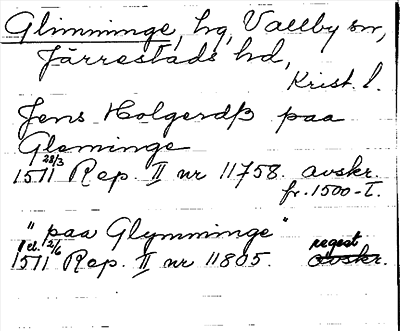 Glimminge, hg, Vallby sn,
Järrestads hd,
Krist. l.
Jens Holgerdß paa
Gleminge
1511 28/3 Rep. II nr 11758. avskr.
fr. 1500-t.
"paa Glymminge"
1511 el. 2/6 Rep. II nr 11805. regest avskr.